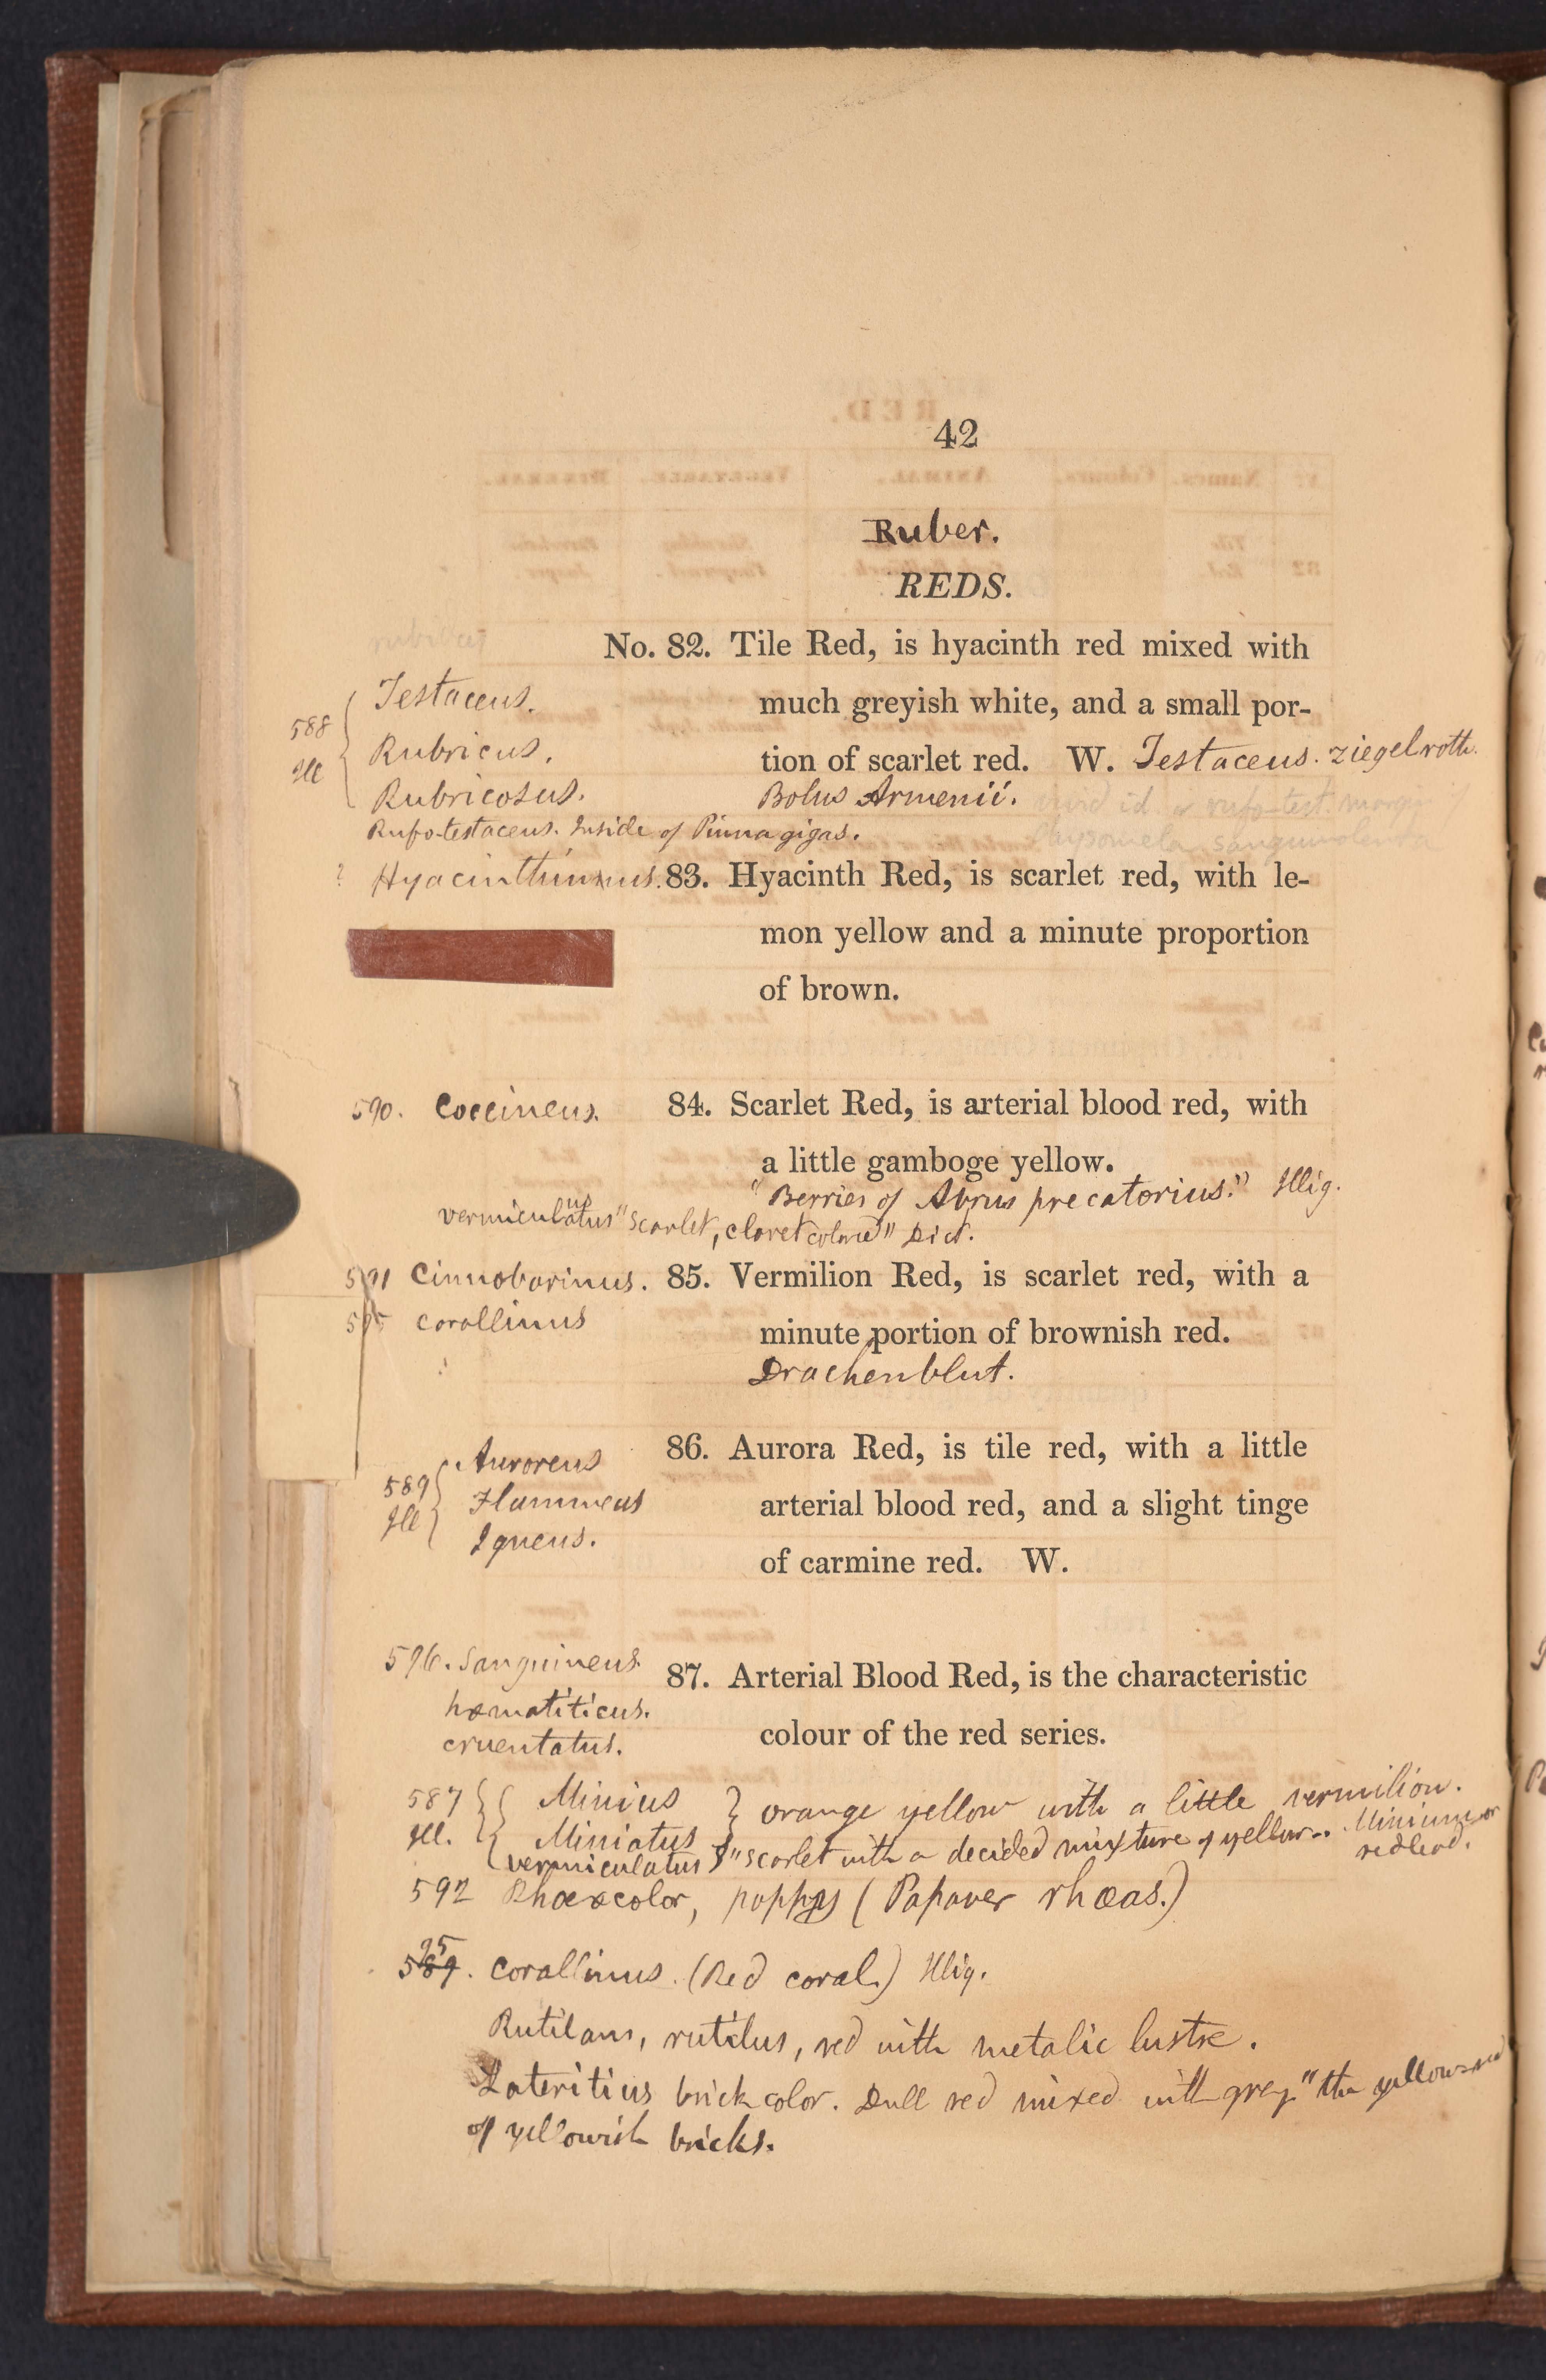 42
Ruber.
REDS.
No. 82. Tile Red, is hyacinth red mixed with
much greyish white, and a small por-
tion of scarlet red. W. Testaceus. ziegelroth.
Bolus Armenii.
588
Ill
Testaceus.
Rubricus.
Rubricosus.
Rufo-testaceus. Inside of Pinna gigas.
? Hyacinthinus. 83. Hyacinth Red, is scarlet red, with le-
mon yellow and a minute proportion
of brown.
590. Coccineus. 84. Scarlet Red, is arterial blood red, with
a little gamboge yellow.
"Berries of Abrus precatorius." Illig.
vermiculatus "scarlet, claret colored" Dict.
591 Cinnobarinus. 85. Vermilion Red, is scarlet red, with a
595 corallinus
minute portion of brownish red.
Drachenblut.
86. Aurora Red, is tile red, with a little
arterial blood red, and a slight tinge
of carmine red. W.
589
Ill
Auroreus
Flammeus
Igneus.
596. Sanguineus 87. Arterial Blood Red, is the characteristic
hæmatiticus.
cruentatus.
colour of the red series.
587
Ill.
Minius
Miniatus
} orange yellow with a little vermilion.
vermiculatus } "scarlet with a decided mixture of yellow. Minium or
red lead.
592 Rhœxcolor, poppy (Papaver rhœas.)
589. 95 corallinus. (Red coral.) Illig.
Rutilans, rutilus, red with metalic lustre.
Lateritius brick color. Dull red mixed with grey "the yellow-red
of yellowish bricks.